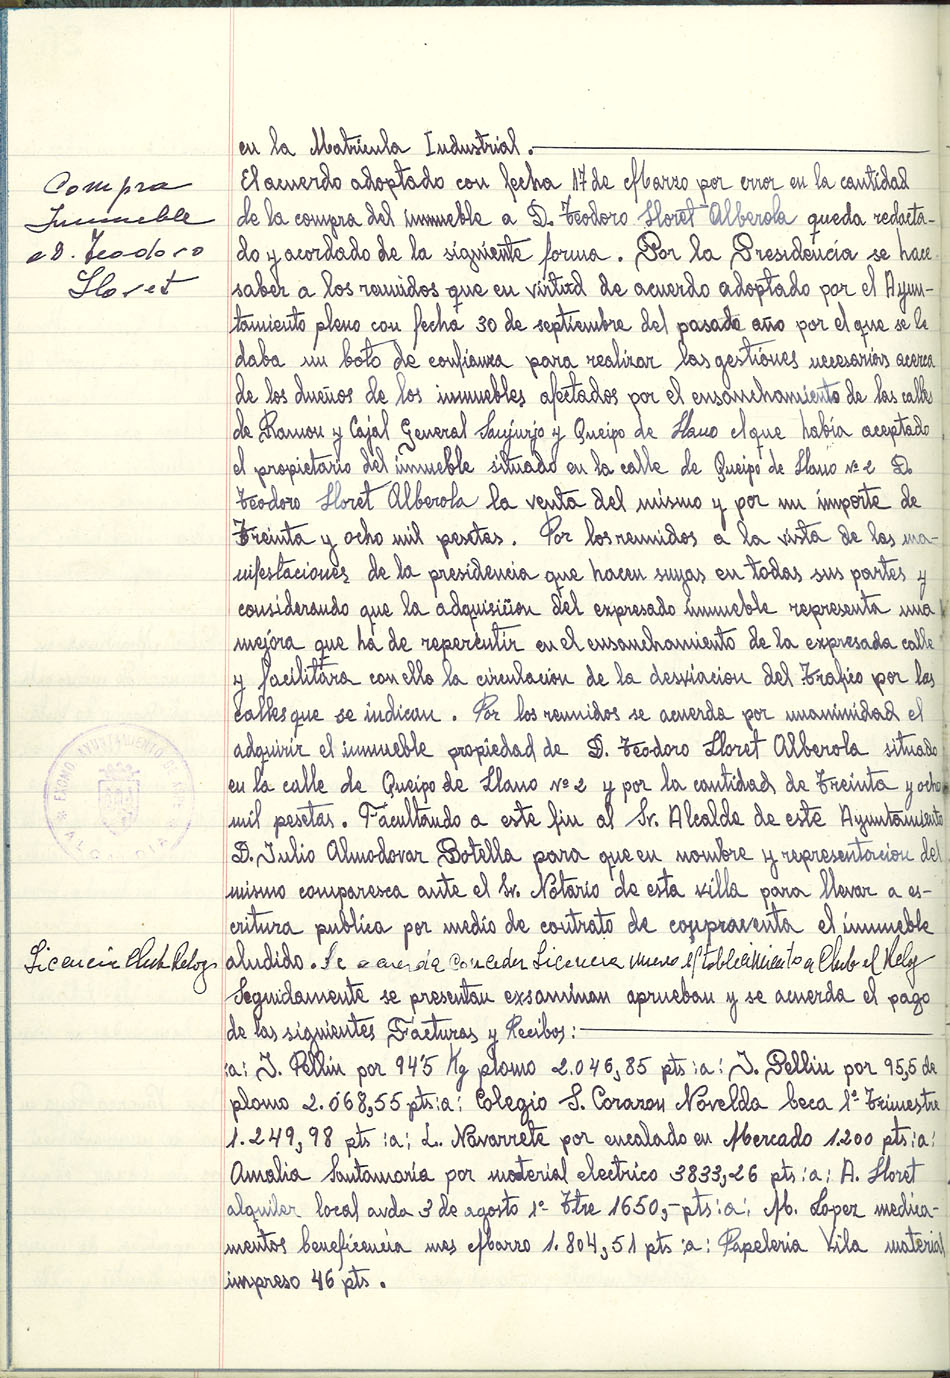 en la Matricula Industrial.
Compra
Inmueble
a D. Teodoro
Lloret
El acuerdo adoptado con fecha 17 de Marzo por error en la cantidad
de la compra del inmueble a D. Teodoro Lloret Alberola queda redacta-
do y acordado de la siguiente forma. Por la Presidencia se hace
saber a los reunidos que en virtud de acuerdo adoptado por el Ayun-
tamiento pleno con fecha 30 de septiembre del pasado año por el que se le
daba un boto de confianza para realizar las gestiones necesarias acerca
de los dueños de los inmuebles afectados por el ensanchamiento de las calles
de Ramon y Cajal General Sanjurjo y Queipo de Llano el que había aceptado
el propietario del inmueble situado en la calle de Queipo de Llano nº 2 D.
Teodoro Lloret Alberola la venta del mismo y por un importe de
Treinta y ocho mil pesetas. Por los reunidos a la vista de las ma-
nifestaciones de la presidencia que hacen suyas en todas sus partes y
considerando que la adquisicion del expresado inmueble representa una
mejora que há de repercutir en el ensanchamiento de la expresada calle
y facilitara con ello la circulacion de la desviacion del Trafico por las
calles que se indican. Por los reunidos se acuerda por unanimidad el
adquirir el inmueble propiedad de D. Teodoro Lloret Alberola situado
en la calle de Queipo de Llano nº 2 y por la cantidad de Treinta y ocho
mil pesetas. Facultando a este fin al Sr. Alcalde de este Ayuntamiento
D. Julio Almodovar Botella para que en nombre y representacion del
mismo comparesca ante el Sr. Notario de esta villa para llevar a es-
critura publica por medio de contrato de compraventa el inmueble
Licencia Club Reloj
aludido. Se acuerda conceder Licencia nuevo establecimiento a Club el Reloj
Seguidamente se presentan exsaminan aprueban y se acuerda el pago
de las siguientes Facturas y Recibos:
:a: J. Pellin por 94'5 Kg plomo 2.046,85 pts :a: J. Pellin por 95,5 de
plomo 2.068,55 pts :a: Colegio S. Corazon Novelda beca 1º Trimestre
1.249,98 pts :a: L. Navarrete por encalado en Mercado 1.200 pts :a:
Amalia Santamaría por material electrico 3833,26 pts :a: A. Lloret
alquiler local avda 3 de agosto 1º Ttre 1650,- pts :a: M. Lopez medica-
mentos beneficencia mes Marzo 1.804,51 pts :a: Papeleria Vila material
impreso 46 pts.
EXCMO. AYUNTAMIENTO DE ASPE
ALCALDIA